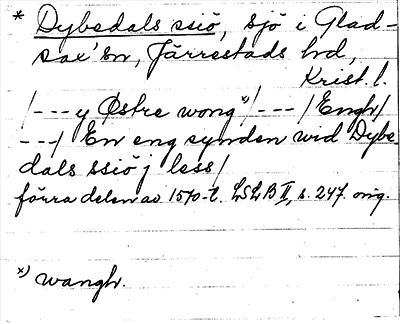 * Dybedals ssiö, sjö i Glad-
sax' sn, Järrestads hd,
Krist. l.
/--- y Østre wong x)/--- /Engh/
---/ En eng synden wid Dybe-
dals ssiö j less/
förra delen av 1570-t. LSLB II, s. 247. orig.
x) wangh.